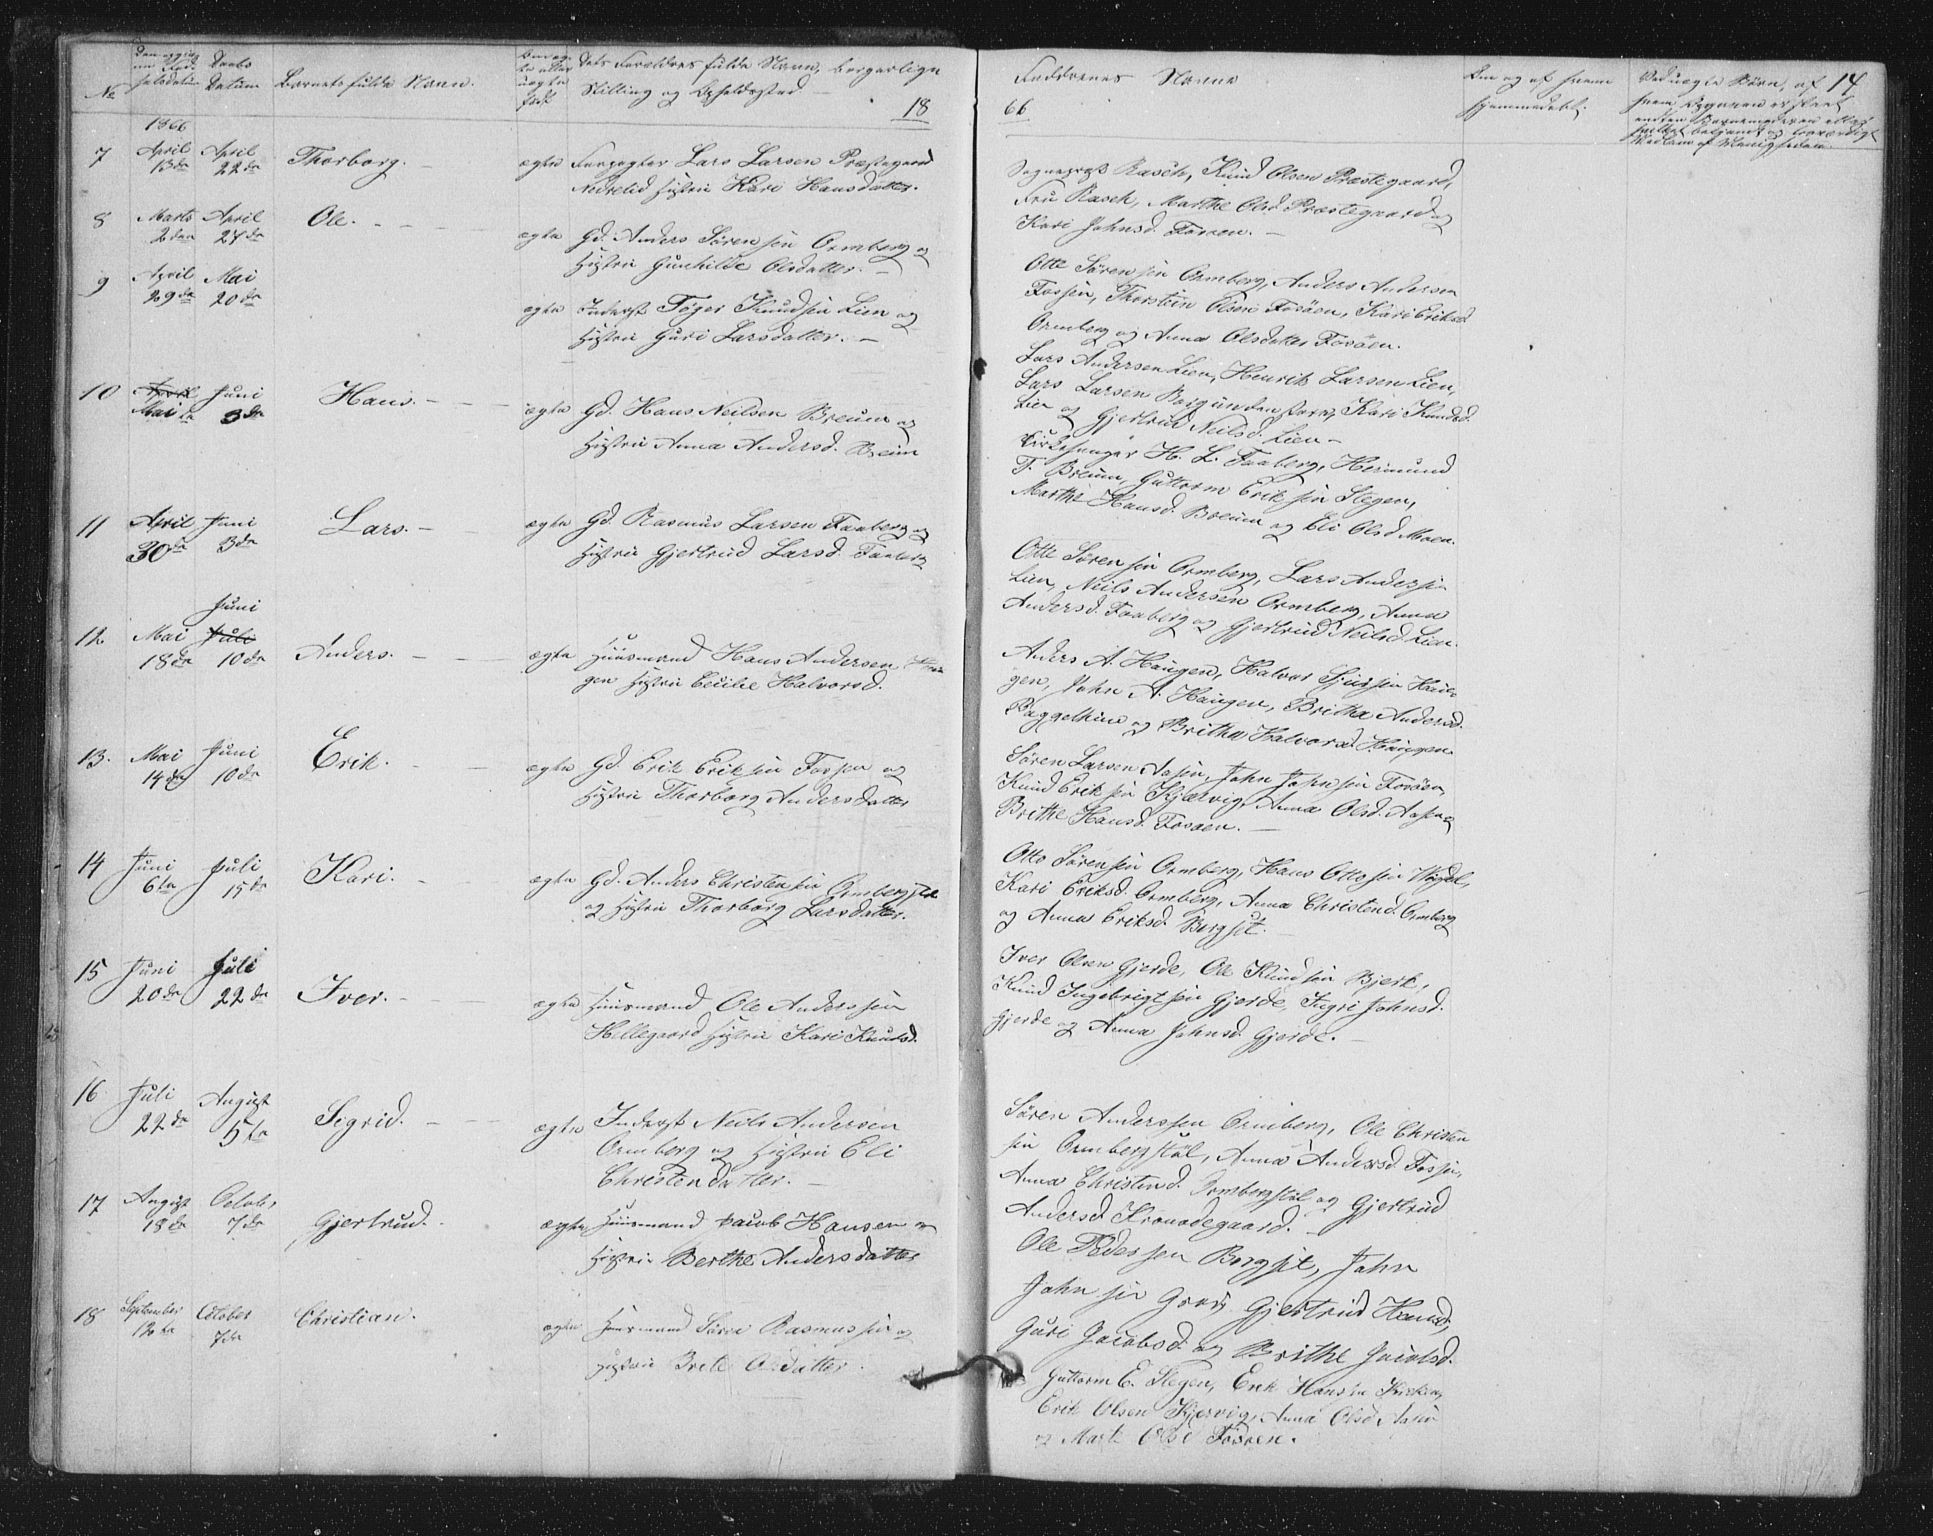 No
Daabs
Datum
Barnets fulde Navn.
Dets Forældres fulde Navn, borgerlige
Stilling og Opholdssted
18
66
Faddernes Navne
14
hjemmedøbt.
1866
7
April
13de
April
22de
Thorborg.
ægte
Lars Larsen Præstegaard
Nedrelid Hustru Kari Hansdatter.
Rasch, Knud Olsen Præstegaard,
Fru Rasch, Marthe Olsd. Præstegaard og
Kari Johnsd. Fosøen.
8
Marts
2den
April
Ole.
ægte
Gd. Anders Sørensen Ormberg og
Hustru Gunhilde Olsdatter.
Otte Sørensen Ormberg, Anders Andersen
Fossen, Thorstein Olsen Fosøen, Kari Eriksd.
Ormberg og Anna Olsdatter Fosøen.
9
April
29de
Mai
20de
ægte
Inderst Tøger Knudsen Lien og
Hustru Guri Larsdatter.
Lars Andersen Lien, Henrik Larsen Lien,
Lars Larsen Kari Knudsd.
Lien og Gjertrud Neilsd. Lien
10
April
Mai
Juni
3de
Hans.
ægte
Gd. Hans Neilsen Breum og
Hustru Anna Andersd. Breum
Kirkesanger H. L. Faaberg, Hermund
T. Breum, Guttorm Eriksen Slegen,
Marthe Hansd. Breum og Eli Olsd. Moen.
11
April
30te
Juni
3de
Lars.
ægte
Gd. Rasmus Larsen Faaberg og
Hustru Gjertrud Larsd. Faaberg
Otte Sørensen Ormberg, Lars Andersen
Lien, Neils Andersen Ormberg, Anna
Andersd. Faaberg og Gjertrud Neilsd. Lien.
12
Mai
18de
Juni
Juli
10de
Anders.
ægte
Huusmand Hans Andersen Hau-
gen Hustru Cecilie Halvorsd.
Anders A. Haugen, Halvor Sjursen Hau-
gen, John A. Haugen, Brithe Andersd.
og Brithe Halvorsd. Haugen.
13.
Mai
14de
Juni
10de
Erik.
ægte
Gd. Erik Eriksen Fossen og
Hustru Thorborg Andersdatter
Søren Larsen Aasen, John Johnsen Fosøen,
Knud Eriksen Kjærvig, Anna Olsd. Aasen og
Brithe Hansd. Fosøen.
14
Juni
6te
Juli
15de
Kari.
ægte
Gd. Anders Christensen Ormbergstøl
og Hustru Thorborg Larsdatter.
Otto Sørensen Ormberg, Hans Ottosen
Kari Eriksd. Ormberg, Anna Christend. Ormberg
og Anna Eriksd. Bergset.
15
Juni
20de
Juli
22de
Iver.
ægte
Huusmand Ole Anderssen
Hellegaard Hustru Kari Knudsd.
Iver Olsen Gjerde, Ole Knudsen Bjerk,
Knud Ingebrigtsen Gjerde, Ingri Johnsd.
Gjerde og Anna Johnsd. Gjerde.
16
Juli
22de
August
5te
Sigrid.
ægte
Inderst Neils Andersen
Ormberg og Hustru Eli
Christendatter.
Søren Anderssen Ormberg, Ole Christen
sen Ormbergstøl, Anna Andersd. Fossen,
Anna Christend. Ormbergstøl og Gjertrud
Andersd. Kronodegaard.
17
August
18de
Octob.
7de
Gjertrud.
ægte
Huusmand Jacob Hansen og
Hustru Berthe Andersdatter
Ole Pedersen Bergset, John
Johnsen Gjertrud Hansd.
Guri Jacobsd. og Brithe Jacobsd.
18
September
12te
October
7de
Christian.
ægte
Huusmand Søren Rasmussen og
Hustru Brite Olsdatter.
Guttorm E. Slegen, Erik Hansen
Erik Olsen Kjervig, Anna Olsd. Aasen
og Marte Olsd. Fosøen.